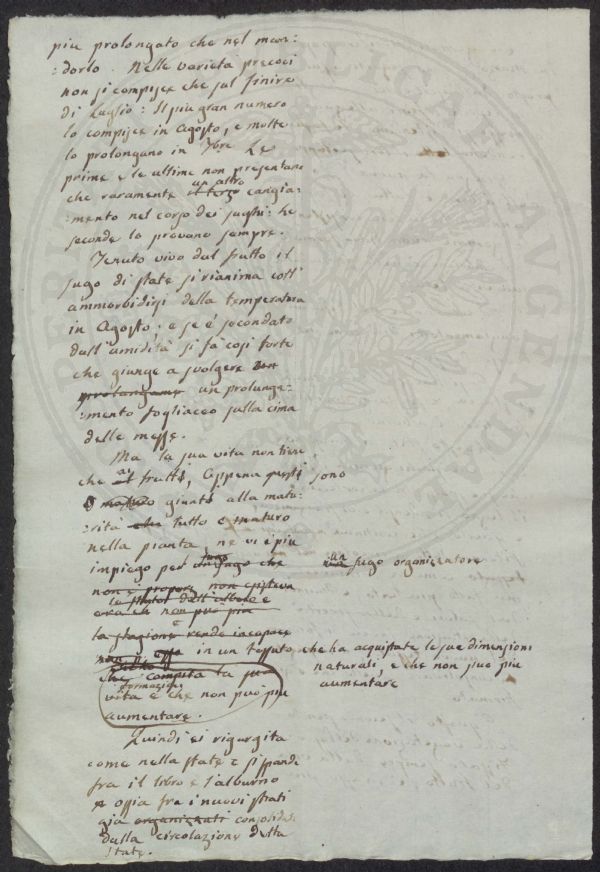 piu prolungato che nel man:
:dorlo. Nelle varietà precoci
non si compisce che sul finire
di Luglio: Il piu gran numero
lo compisce in Agosto, e molte
lo prolungano in 7bre. Le
prime e le ultime non presentano
che raramente il terzo un altro cangia:
:mento nel corso dei sughi: le
seconde lo provano sempre.
Tenuto vivo dal frutto il
sugo di state si rianima coll'
ammorbidirsi della temperatura
in Agosto; e se è secondato
dall'umidità si fà così forte
che giunge a svolgere
un prolunga:
:mento fogliaceo sulla cima
delle messe.
Ma la sua vita non tiene
che ai frutti, Appena questi sono
giunti alla matu:
:rità tutto è maturo
nella pianta, ne vi è piu
impiego per un sugo organizzatore
non esisteva
la stagione rende incapace
in un tessuto che ha acquistate le sue dimensioni
naturali, e che non puo piu
aumentare
che compita la sua
formazione
vita e che non può piu
aumentare.
Quindi ei rigurgita
come nella state e si spande
fra il libro e l'alburno
ossia fra i nuovi strati
già organizzati consolidati
dalla circolazione della
state.
PERI
PUBLICAE
AUGENDAE